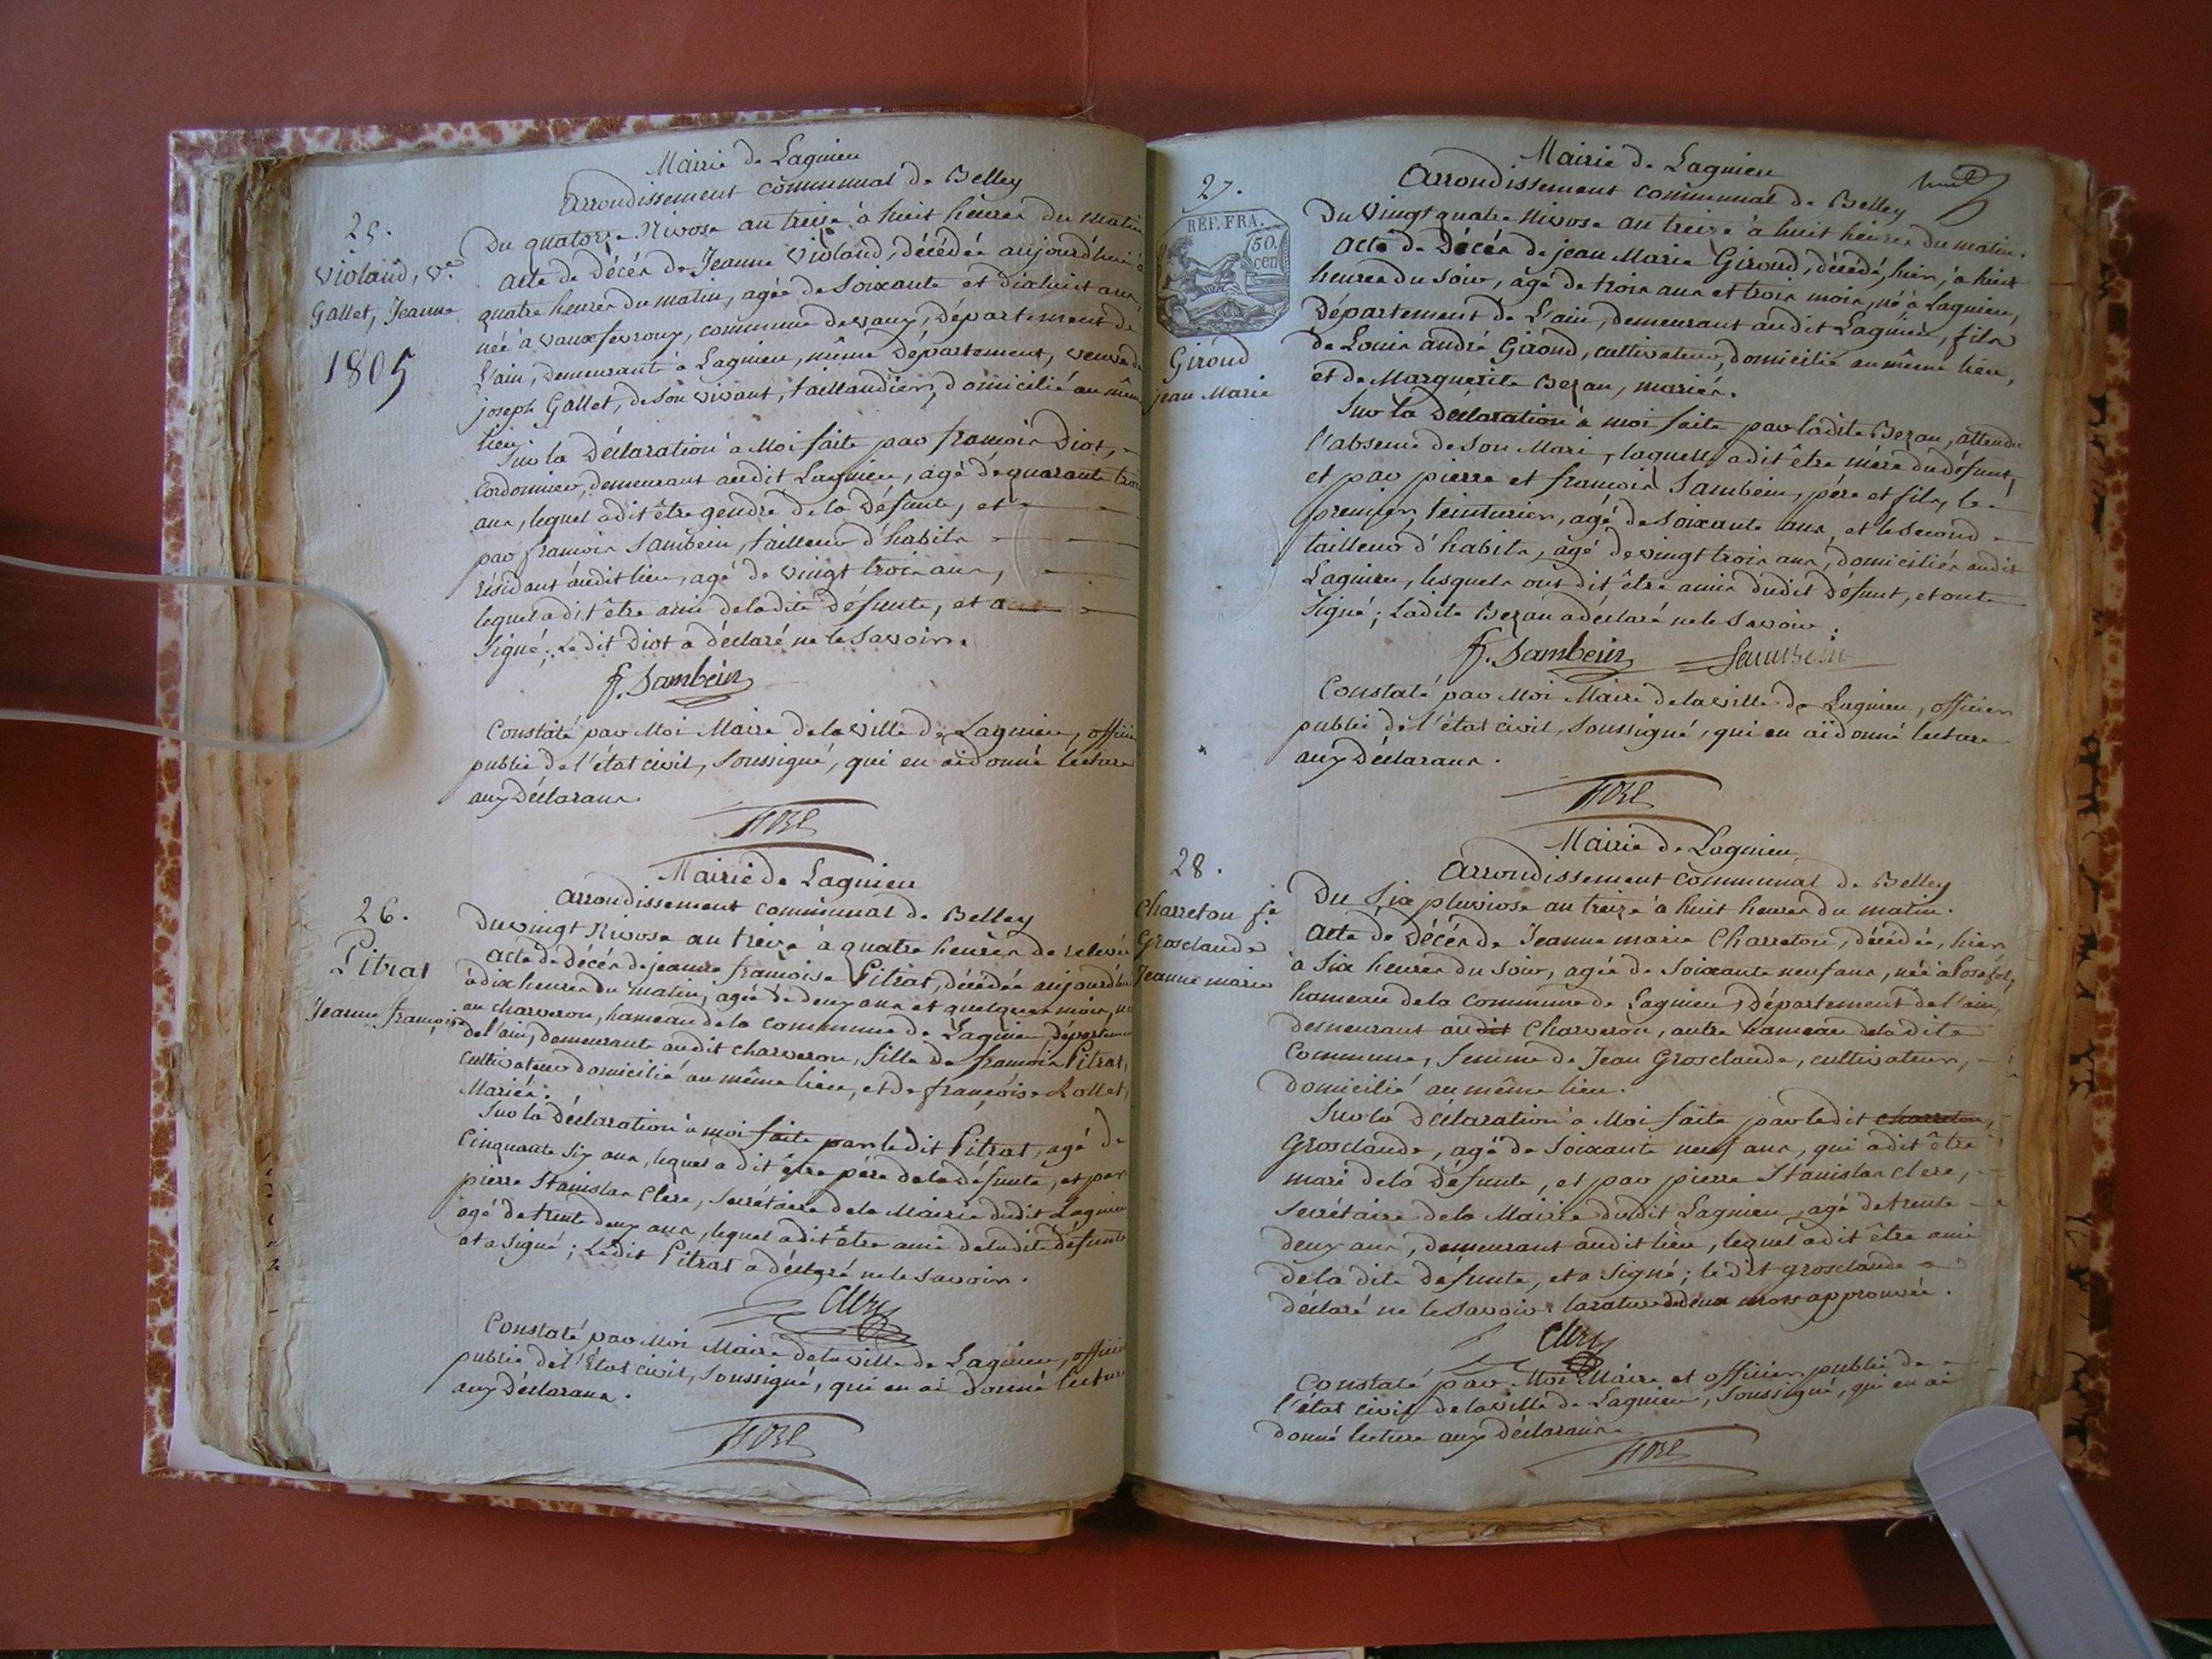 Mairie de Lagnieu
Arrondissement communal de Belley
25.
Violand, ve
Gallet, Jeanne
1805
Du quatorze Nivose an treize à huit heures du matin
acte de Décès de Jeanne Violand, décédée aujourd'hui à
quatre heures du matin, agée de soixante et dixhuit ans,
née à vauxfevroux, commune de vaux, département de
l'ain, demeurante à Lagnieu, même département, veuve de
joseph Gallet, de son vivant, taillandier, domicilié au même
lieu.
Sur la Déclaration à Moi faite par françois Diot,
Cordonnier, demeurant audit Lagnieu, agé de quarante trois
ans, lequel a dit être gendre de la Défunte, et
par françois Sambein, tailleur d'habits
résidant audit lieu, agé de vingt trois ans,
lequel a dit être ami de ladite Défunte, et a
Signé; Ledit Diot a déclaré ne le savoir.
f. Sambein
Constaté par Moi Maire de la ville de Lagnieu, officier
public de l'état civil, soussigné, qui en ai donné lecture
aux Déclarans.
Mairie de Lagnieu
arrondissement communal de Belley
26.
Pitrat
Jeanne françoise
Du vingt Nivose an treize à quatre heures de relevée
acte de décès de jeanne françoise Pitrat, décédée aujourd'hui
à dix heures du matin, agée de deux ans et quelques mois, née
au charveron, hameau de la commune de Lagnieu, département
de l'ain, demeurante audit charveron, fille de françois Pitrat,
cultivateur domicilié au même lieu, et de françoise Rollet,
Mariés.
Sur la déclaration à moi faite par ledit Pitrat, agé de
Cinquante six ans, lequel a dit être père de la défunte, et par
pierre Stanislas Clerc, secrétaire de la Mairie dudit Lagnieu
agé de trente deux ans, lequel a dit être ami de ladite défunte
et a signé; Ledit Pitrat a déclaré ne le savoir.
Clerc
Constaté par Moi Maire de la ville de Lagnieu, officier
public de l'État civil, soussigné, qui en ai donné lecture
aux Déclarans.
Mairie de Lagnieu
Arrondissement communal de Belley
27.
REF. FRA.
50.
cen
Girond
jean Marie
Du Vingt quatre nivose an treize à huit heures du matin.
acte de Décès de jean Marie Girond, décédé, hier, à huit
heures du soir, agé de trois ans et trois mois, né à Lagnieu,
Département de l'ain, demeurant audit Lagnieu, fils
de Louis andré Girond, cultivateur, domicilié au même lieu,
et de Marguerite Bezan, mariés.
Sur la Déclaration à moi faite par ladite Bezan, attendu
l'absence de son Mari, laquelle a dit être mère du défunt,
et par pierre et françois Sambein, père et fils, le
premier, teinturier, agé de soixante ans, et le second
tailleur d'habits, agé de vingt trois ans, domiciliés audit
Lagnieu, lesquels ont dit être amis dudit Défunt, et ont
Signé; Ladite Bezan a déclaré ne le savoir.
f. Sambein Sambein
Constaté par Moi Maire de la ville de Lagnieu, officier
public de l'état civil, soussigné, qui en ai donné lecture
aux Déclarans.
Mairie de Lagnieu
Arrondissement communal de Belley
28.
Charreton fe
Grosclaude
Jeanne marie
Du Six pluviose an treize à huit heures du matin.
acte de Décès de Jeanne marie Charreton, décédée, hier
à Six heures du soir, agée de soixante neuf ans, née à Posafol,
hameau de la commune de Lagnieu, Département de l'ain,
demeurant au dit Charveron, autre hameau de la dite
Commune, femme de Jean Grosclaude, cultivateur,
domicilié au même lieu.
Sur la déclaration à Moi faite par ledit charreton,
Grosclaude, agé de soixante neuf ans, qui a dit être
mari de la défunte, et par pierre Stanislas Clerc,
secrétaire de la Mairie dudit Lagnieu, agé de trente
deux ans, demeurant audit lieu, lequel a dit être ami
de la dite défunte, et a signé; ledit grosclaude a
déclaré ne le savoir. la rature de deux mots approuvée.
Clerc
Constaté par Moi Maire et officier public de
l'état civil de la ville de Lagnieu, soussigné, qui en ai
donné lecture aux déclarans.